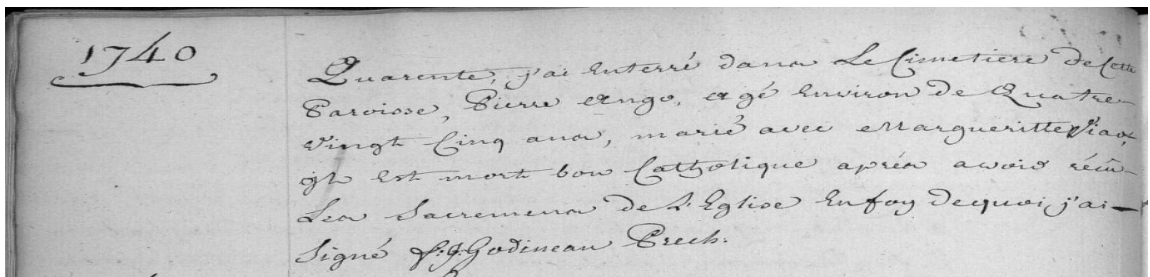 1740
Quarente, j'ai Enterré dans Le Cimetiere de Cette
Paroisse, Pierre ango, agé Environ de Quatre-
vingt Cinq ans, marié avec Margueritte
il est mort bon Catholique aprés avoir récû-
Les Sacremens de L'Eglise En foy dequoi, j'ai
Signé f: J: Godineau Prech: